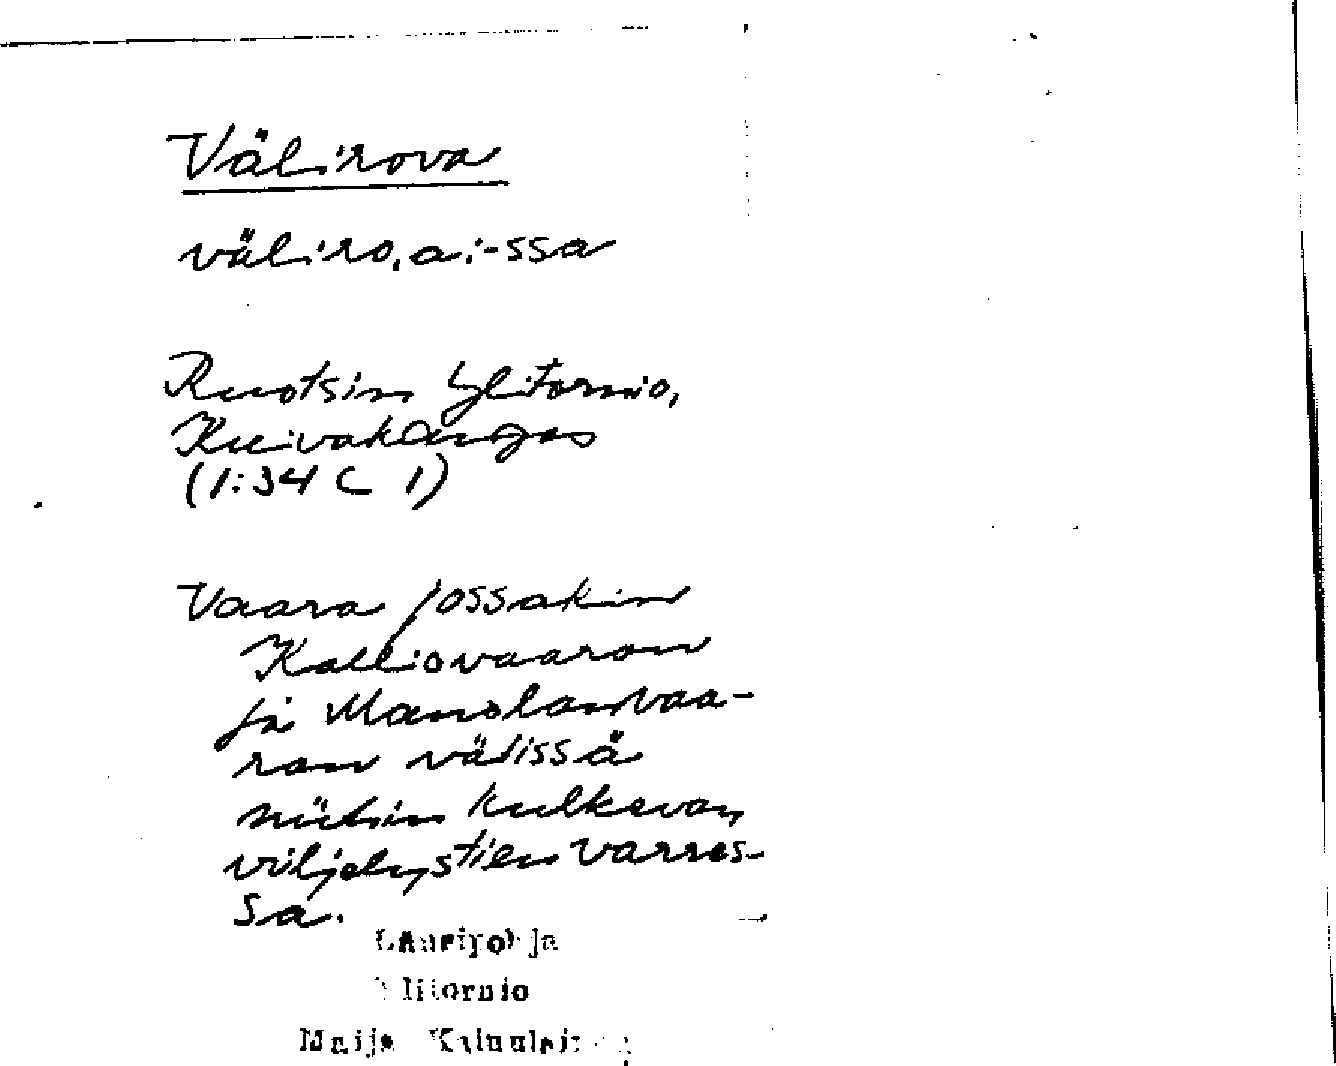 Välirova
väliro,a:-ssa
Ruotsin Ylitornio,
Kuivakangas
(1:34 C 1)
Vaara jossakin
Kalliovaaran
ja Manolanvaa-
ran välissä
niihin kulkevan
viljelystien varres-
sa.
Lauripohja
Ylitornio
Maija